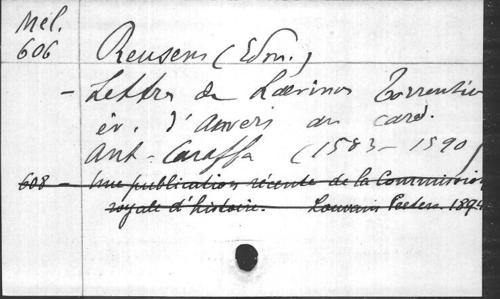 Mél.
606
Reusens (Edm.)
- Lettres de Laevinus Torrentius
év. d'Anvers au card.
Ant. Caraffa (1583-1590)
608 - Une publication récente de la Commission
royale d'histoire. Louvain Peeters. 1894